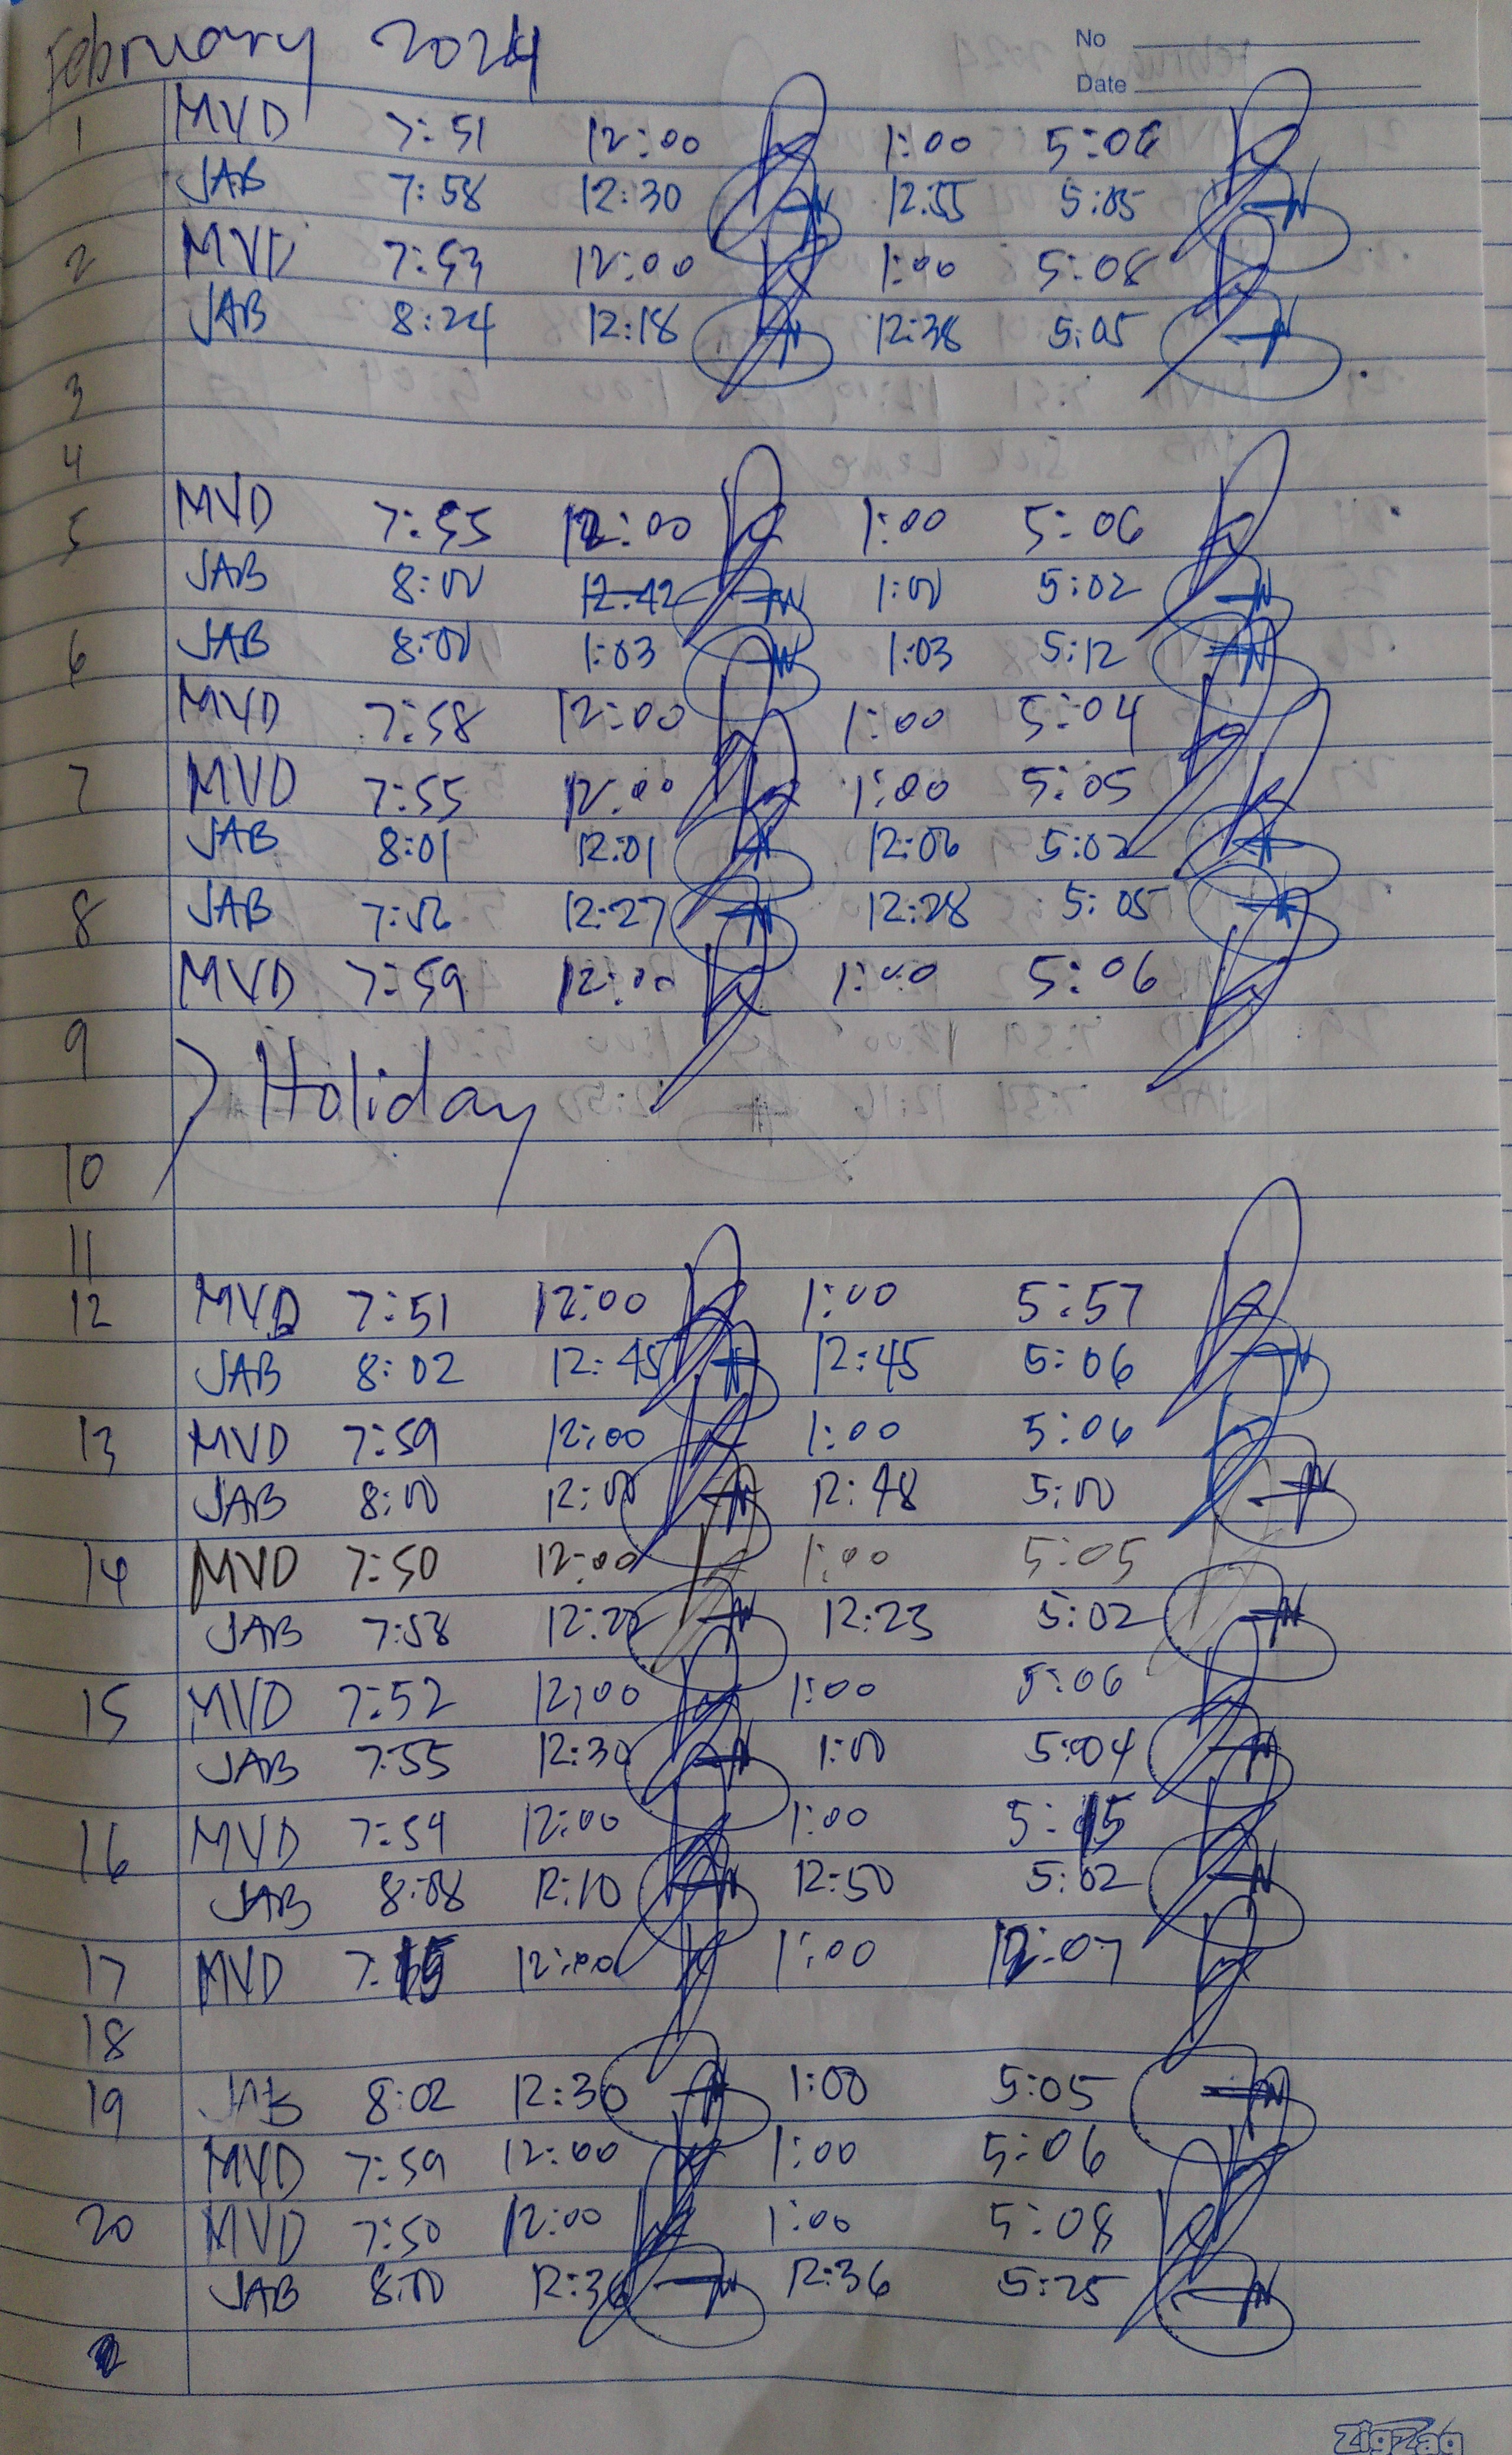 February 2024
No
Date
1 MVD 7:51 12:00 1:00 5:06
JAB 7:58 12:30 12:55 5:05
2 MVD 7:53 12:00 1:00 5:08
JAB 8:24 12:18 12:38 5:05
3
4
5 MVD 7:55 12:00 1:00 5:06
JAB 8:00 12:42 1:00 5:02
6 JAB 8:00 1:03 1:03 5:12
MVD 7:58 12:00 1:00 5:04
7 MVD 7:55 12:00 1:00 5:05
JAB 8:01 12:01 12:06 5:02
8 JAB 12:27 12:28 5:05
MVD 7:59 12:00 1:00 5:06
9
Holiday
10
11
12 MVD 7:51 12:00 1:00 5:57
JAB 8:02 12:45 12:45 5:06
13 MVD 7:59 12:00 1:00 5:06
JAB 8:00 12:00 12:48 5:00
14 MVD 7:50 12:00 1:00 5:05
JAB 7:58 12:23 5:02
15 MVD 7:52 12:00 1:00 5:06
JAB 7:55 12:30 1:00 5:04
16 MVD 12:00 1:00 5:15
JAB 8:08 12:10 12:50 5:02
17 MVD 12:00 1:00 12:07
18
19 JAB 8:02 12:30 1:00 5:05
MVD 7:59 12:00 1:00 5:06
20 MVD 7:50 12:00 1:00 5:08
JAB 8:00 12:36 12:36 5:25
ZigZag